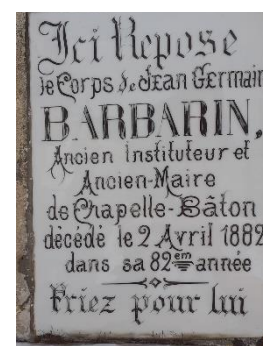 Ici Repose
le Corps de Jean Germain
BARBARIN,
Ancien Instituteur et
Ancien-Maire
de Chapelle-Bâton
décédé le 2 Avril 1882
dans sa 82ème année
Priez pour lui